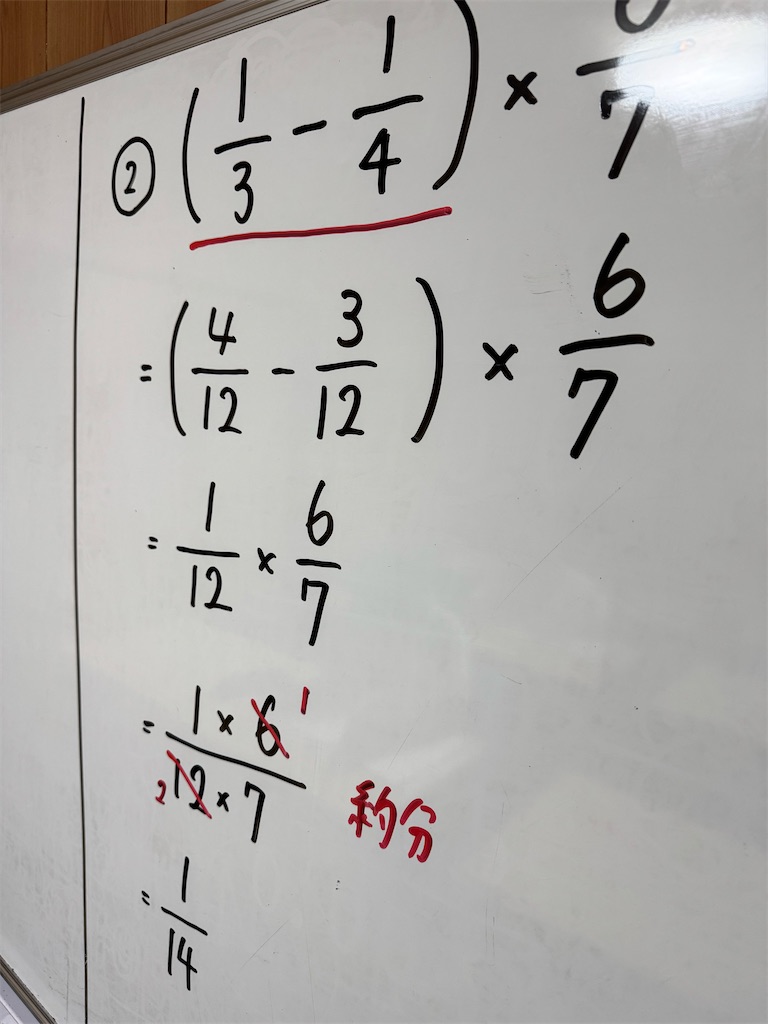 ② (1/3 - 1/4) × 6/7
= (4/12 - 3/12) × 6/7
= 1/12 × 6/7
= 1 × 6 1 / 2 12 × 7 約分
= 1/14